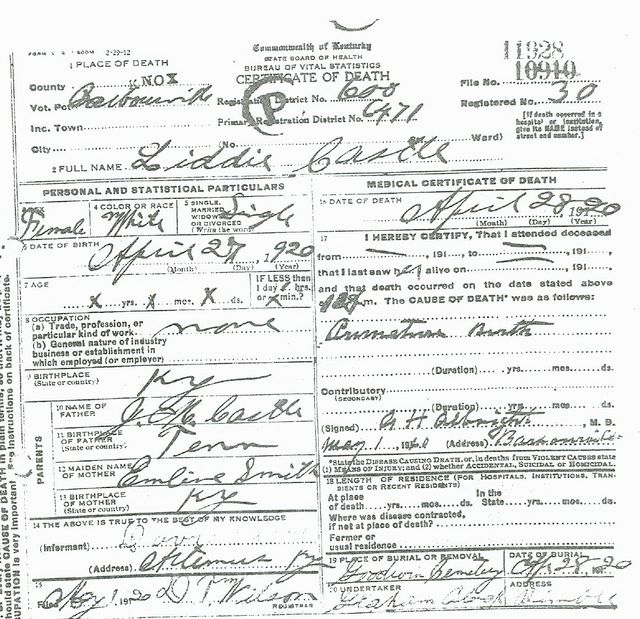 FORM V. S. 2-29-12
Commonwealth of Kentucky
STATE BOARD OF HEALTH
BUREAU OF VITAL STATISTICS
CERTIFICATE OF DEATH
11928
10910
1 PLACE OF DEATH
County KNOX
Vot. Pct. Barbourville
Registration District No. 600
File No.
Inc. Town
Primary Registration District No. 6471
Registered No. 30
[If death occurred in a hospital or institution, give its NAME instead of street and number.]
City (No. Ward)
2 FULL NAME Liddie Castle
PERSONAL AND STATISTICAL PARTICULARS
3 Female
4 COLOR OR RACE White
5 SINGLE, MARRIED, WIDOWED OR DIVORCED (Write the word) Sigle
6 DATE OF BIRTH April 27, 1920
(Month) (Day) (Year)
7 AGE
x yrs. x mos. x ds.
IF LESS than 1 day hrs. or min.?
8 OCCUPATION
(a) Trade, profession, or particular kind of work none
(b) General nature of industry business or establishment in which employed (or employer)
9 BIRTHPLACE (State or country) Ky
PARENTS
10 NAME OF FATHER Castle
11 BIRTHPLACE OF FATHER (State or country) Tenn
12 MAIDEN NAME OF MOTHER Emline Smith
13 BIRTHPLACE OF MOTHER (State or country) Ky
14 THE ABOVE IS TRUE TO THE BEST OF MY KNOWLEDGE
(Informant)
(Address) Artemus Ky
15
Filed May 1 1920 D T Wilson
REGISTRAR
MEDICAL CERTIFICATE OF DEATH
16 DATE OF DEATH April 28, 1920
(Month) (Day) (Year)
17 I HEREBY CERTIFY, That I attended deceased
from , 191 , to , 191 ,
that I last saw alive on , 191 ,
and that death occurred on the date stated above
m. The CAUSE OF DEATH* was as follows:
Premature Birth
(Duration) yrs. mos. ds.
Contributory
(SECONDARY)
(Duration) yrs. mos. ds.
(Signed) , M. D.
May 1, 1920 (Address)
*State the DISEASE CAUSING DEATH, or, in deaths from VIOLENT CAUSES state (1) MEANS OF INJURY; and (2) whether ACCIDENTAL, SUICIDAL OR HOMICIDAL.
18 LENGTH OF RESIDENCE (FOR HOSPITALS, INSTITUTIONS, TRANSIENTS OR RECENT RESIDENTS)
At place of death yrs. mos. ds. In the State yrs. mos. ds.
Where was disease contracted, if not at place of death?
Former or usual residence
19 PLACE OF BURIAL OR REMOVAL
DATE OF BURIAL
Cemetery 28 1920
20 UNDERTAKER
ADDRESS
should state CAUSE OF DEATH in plain terms,
OCCUPATION is very important. See instructions on back of certificate.